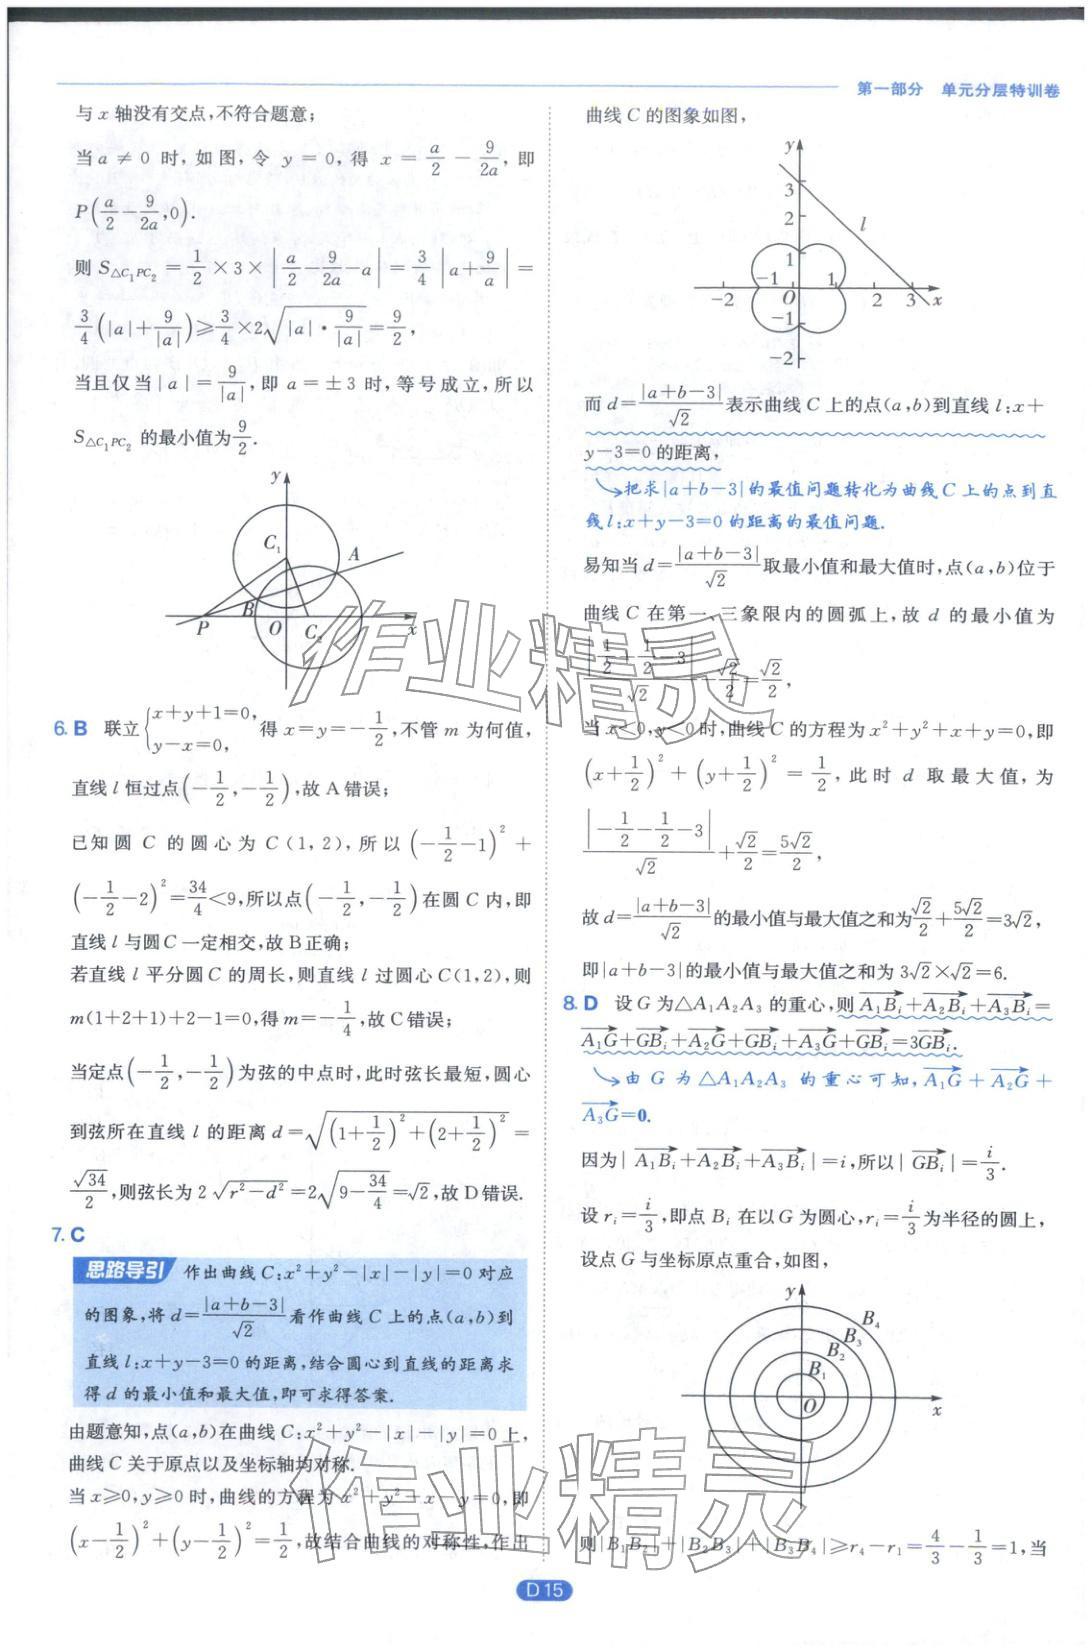 第一部分 单元分层特训卷
与 x 轴没有交点,不符合题意;
当 a≠0 时,如图,令 y=0,得 x=a/2-9/(2a),即
P(a/2-9/(2a),0).
则 S△C₁PC₂=1/2×3×|a/2-9/(2a)-a|=3/4|a+9/a|=
3/4(|a|+9/|a|)≥3/4×2√(|a|·9/|a|)=9/2,
当且仅当|a|=9/|a|,即 a=±3 时,等号成立,所以
S△C₁PC₂ 的最小值为9/2.
y
C₁
A
B
P O C₂ x
6. B 联立{x+y+1=0, y-x=0, 得 x=y=-1/2,不管 m 为何值,
直线 l 恒过点(-1/2,-1/2),故 A 错误;
已知圆 C 的圆心为 C(1,2),所以(-1/2-1)²+
(-1/2-2)²=34/4<9,所以点(-1/2,-1/2)在圆 C 内,即
直线 l 与圆 C 一定相交,故 B 正确;
若直线 l 平分圆 C 的周长,则直线 l 过圆心 C(1,2),则
m(1+2+1)+2-1=0,得 m=-1/4,故 C 错误;
当定点(-1/2,-1/2)为弦的中点时,此时弦长最短,圆心
到弦所在直线 l 的距离 d=√((1+1/2)²+(2+1/2)²)=
√34/2,则弦长为 2√(r²-d²)=2√(9-34/4)=√2,故 D 错误.
7. C
思路导引 作出曲线 C:x²+y²-|x|-|y|=0 对应
的图象,将 d=|a+b-3|/√2 看作曲线 C 上的点(a,b)到
直线 l:x+y-3=0 的距离,结合圆心到直线的距离求
得 d 的最小值和最大值,即可求得答案.
由题意知,点(a,b)在曲线 C:x²+y²-|x|-|y|=0 上,
曲线 C 关于原点以及坐标轴均对称.
当 x≥0,y≥0 时,曲线的方程为 x²+y²-x-y=0,即
(x-1/2)²+(y-1/2)²=1/2,故结合曲线的对称性,作出
曲线 C 的图象如图,
y
3
2
l
1
-2 -1 O 1 2 3 x
-1
-2
而 d=|a+b-3|/√2 表示曲线 C 上的点(a,b)到直线 l:x+
y-3=0 的距离,
把求|a+b-3|的最值问题转化为曲线 C 上的点到直
线 l:x+y-3=0 的距离的最值问题.
易知当 d=|a+b-3|/√2 取最小值和最大值时,点(a,b)位于
曲线 C 在第一、三象限内的圆弧上,故 d 的最小值为
|1/2+1/2-3|/√2-√2/2=√2/2,
当 x<0,y<0 时,曲线 C 的方程为 x²+y²+x+y=0,即
(x+1/2)²+(y+1/2)²=1/2,此时 d 取最大值,为
|-1/2-1/2-3|/√2+√2/2=5√2/2,
故 d=|a+b-3|/√2 的最小值与最大值之和为√2/2+5√2/2=3√2,
即|a+b-3|的最小值与最大值之和为 3√2×√2=6.
8. D 设 G 为△A₁A₂A₃ 的重心,则 A₁Bᵢ→+A₂Bᵢ→+A₃Bᵢ→=
A₁G→+GBᵢ→+A₂G→+GBᵢ→+A₃G→+GBᵢ→=3GBᵢ→.
由 G 为△A₁A₂A₃ 的重心可知,A₁G→+A₂G→+
A₃G→=0.
因为|A₁Bᵢ→+A₂Bᵢ→+A₃Bᵢ→|=i,所以|GBᵢ→|=i/3.
设 rᵢ=i/3,即点 Bᵢ 在以 G 为圆心,rᵢ=i/3 为半径的圆上,
设点 G 与坐标原点重合,如图,
y
B₄
B₃
B₂
B₁
O x
则|B₁B₂→|+|B₂B₃→|+|B₃B₄→|≥r₄-r₁=4/3-1/3=1,当
D 15
作业精灵
作业精灵